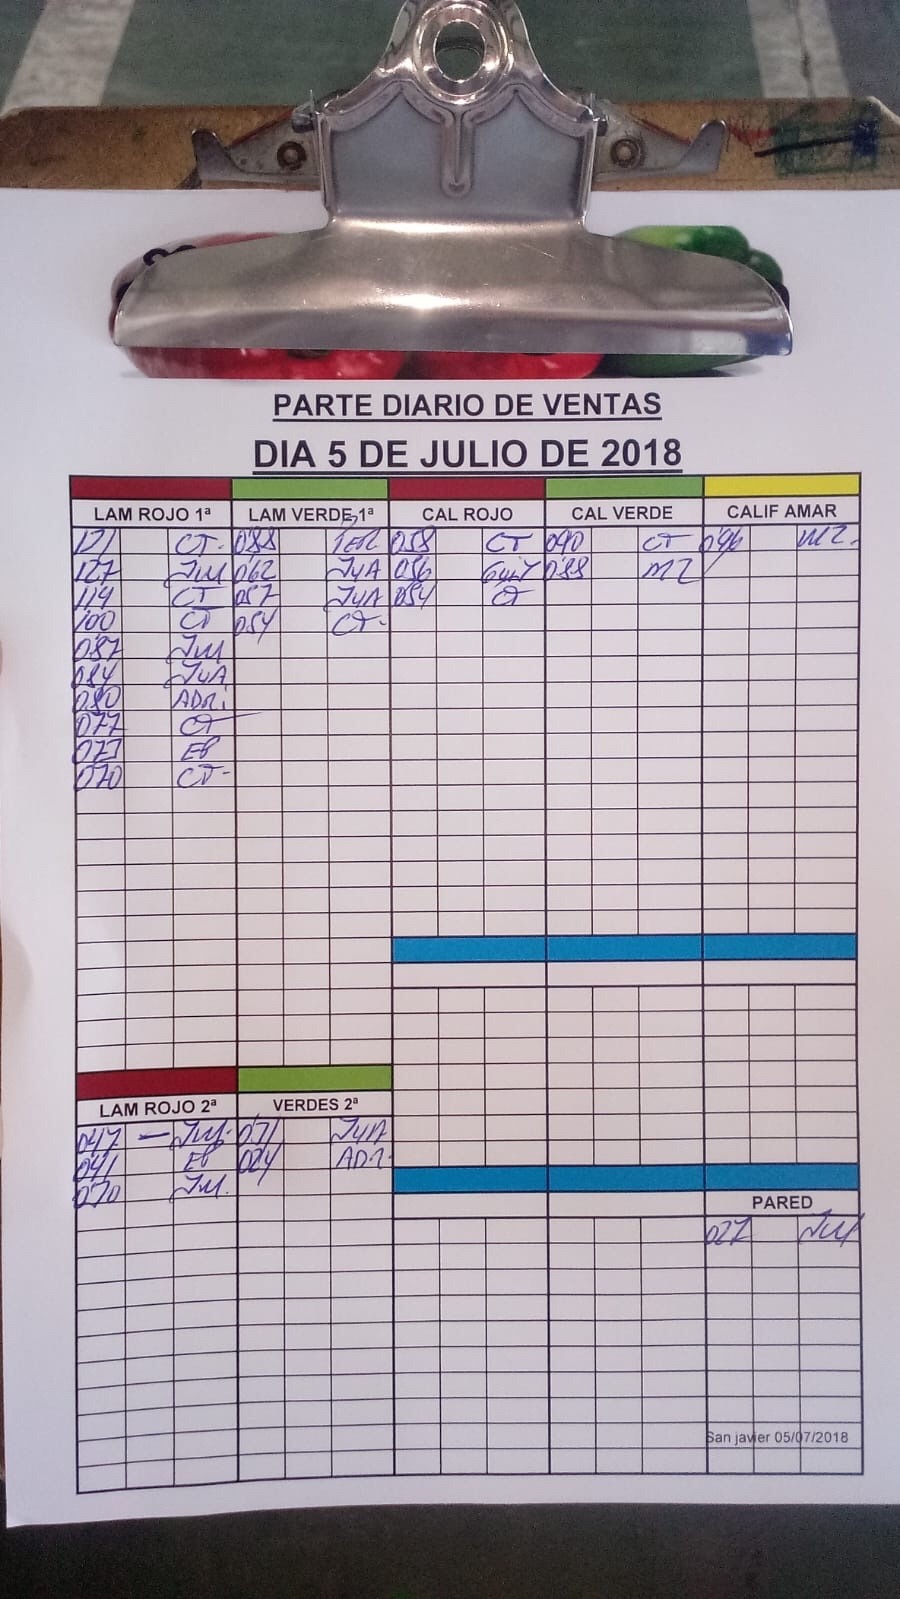 PARTE DIARIO DE VENTAS
DIA 5 DE JULIO DE 2018
LAM ROJO 1ª LAM VERDE 1ª CAL ROJO CAL VERDE CALIF AMAR
121 CT- 088 058 CT 090 CT 096 MZ.
127 JM 062 JyA 056 088 MZ
119 CT 057 JyA 054 CT
100 CT 054 CT-
087 JM
084 JyA
080 ADRi
077 CT
073 EP
070 CT-
LAM ROJO 2ª VERDES 2ª
047 — JM. 031 JyA
041 EP 024 ADR.
070 JM.
PARED
027 JM
San javier 05/07/2018